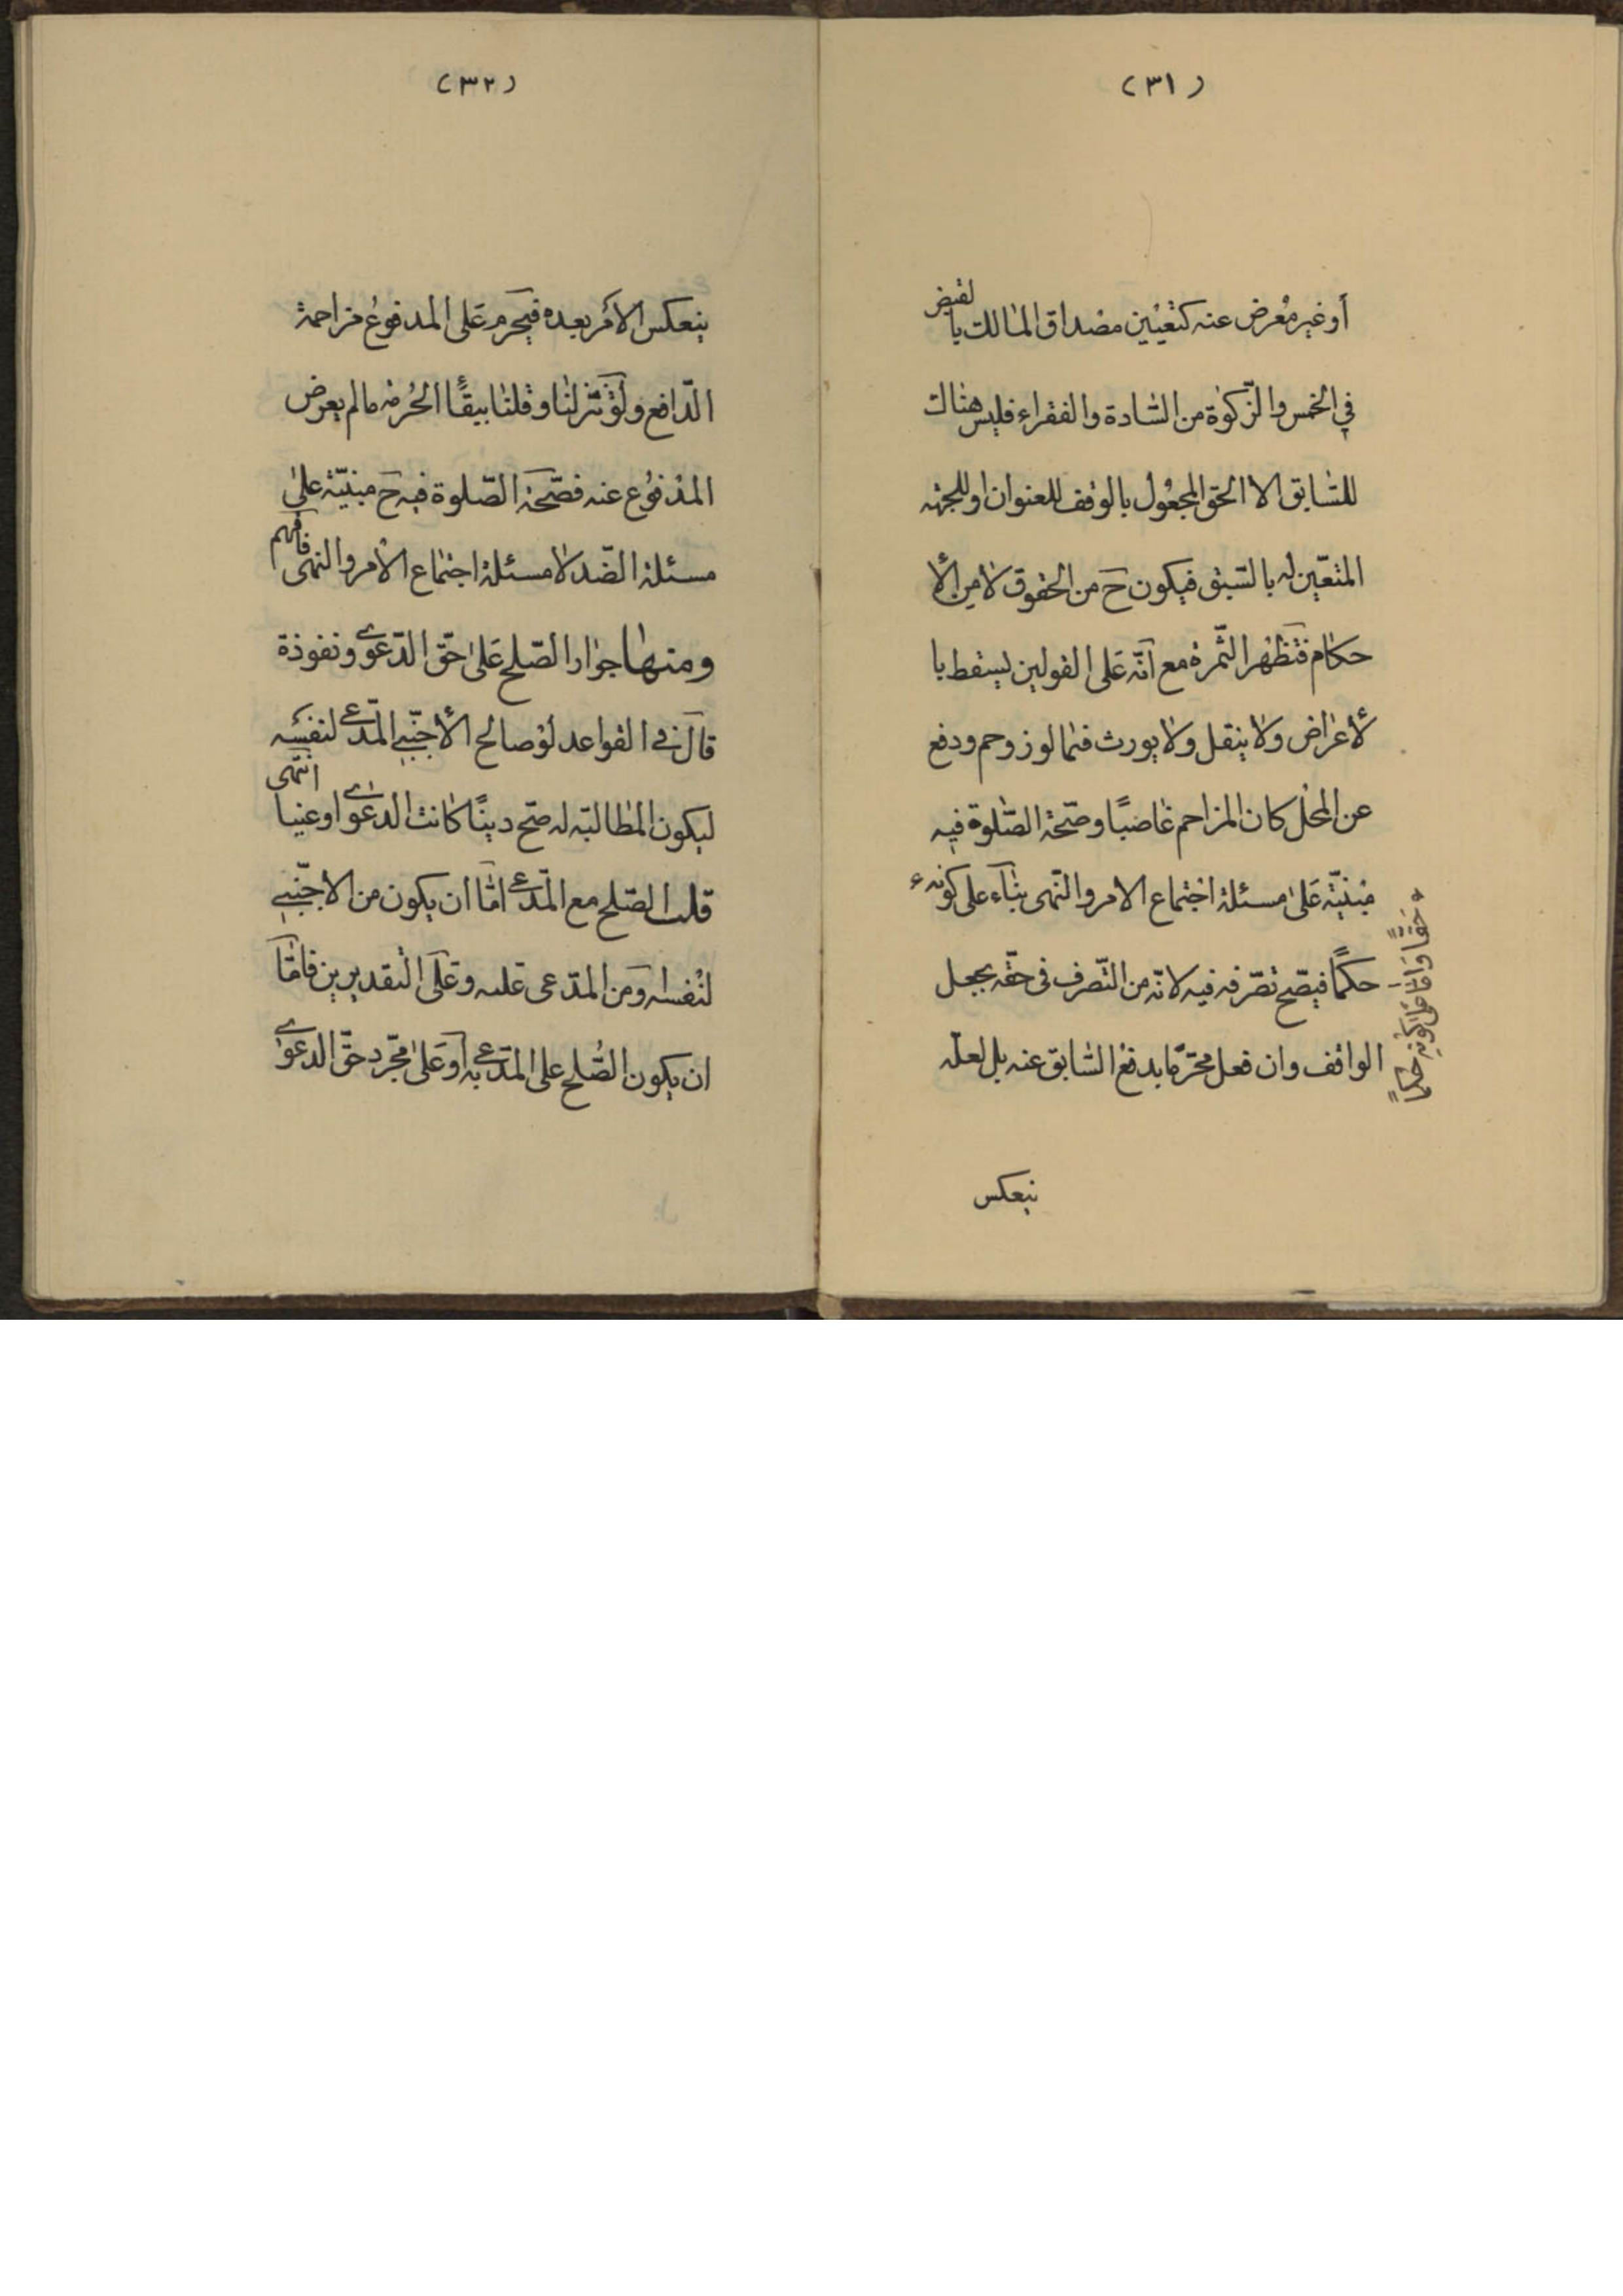 (٣١)
أو غير معرض عنه كتعيين مصداق المالك بالقبض
في الخمس والزّكوة من السّادة والفقراء فليس هناك
للسّابق الا الحق المجعول بالوقف للعنوان او للجهة
المتعيّن له بالسّبق فيكون ح من الحقوق لا من الأ
حكام فتظهر الثّمرة مع انّه على القولين يسقط با
لأعراض ولا ينقل ولا يورث فيما لو زوحم ودفع
عن المحل كان المزاحم غاصبًا وصحّة الصّلوة فيه
مبنيّة على مسئلة اجتماع الامر والنّهى بناء على كونه
حقًّا وامّا على كونه حكمًا
حكمًا فيصّح تصّرفه فيه لانّه من التّصرف فى حقّه بجعل
الواقف وان فعل محرّمًا بدفع السّابق عنه بل لعلّه
ينعكس
(٣٢)
ينعكس الأمر بعده فيحرم على المدفوع مزاحمة
الدّافع ولو تنزلنا وقلنا ببقاء الحرمة ما لم يعرض
المدفوع عنه فصّحة الصّلوة فيه ح مبنيّة على
مسئلة الضّد لا مسئلة اجتماع الأمر والنهى فافهم
ومنها جواز الصّلح على حقّ الدّعوى ونفوذه
قال فى القواعد لو صالح الأجنّبي المدّعى لنفسه
ليكون المطالبة له صح دينًا كانت الدعوى او عينا انتهى
قلت الصّلح مع المدّعى امّا ان يكون من الاجنّبي
لنفسه ومن المدّعى عليه وعلى التقديرين فامّا
ان يكون الصّلح على المدّعى به او على مجّرد حقّ الدعوى